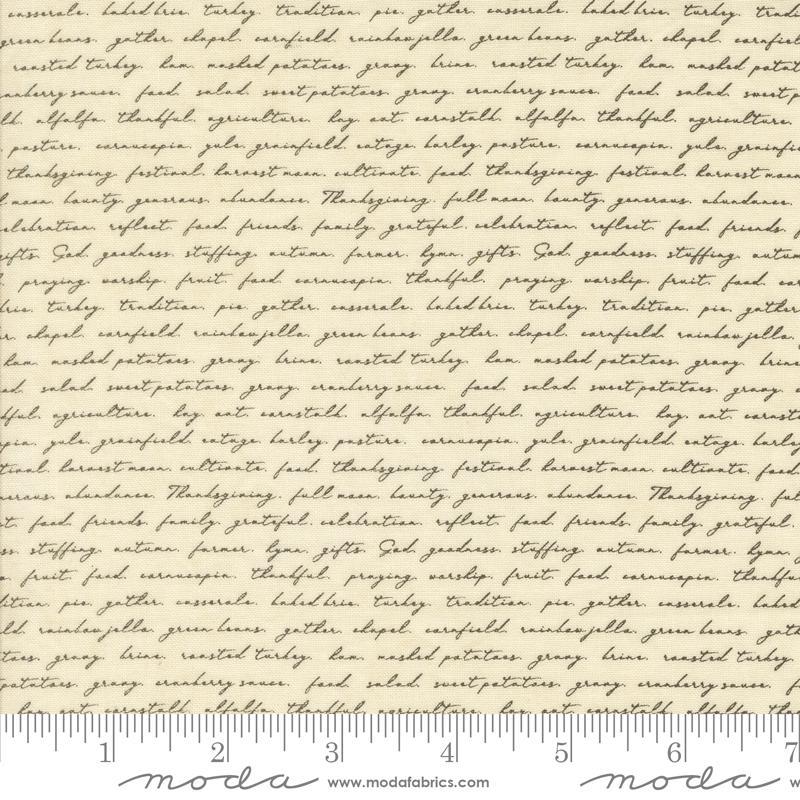 casserole. baked brie. turkey. tradition. pie. gather. casserole. baked brie. turkey.
green beans. gather. chapel. cornfield. rainbow jello. green beans. gather. chapel.
roasted turkey. ham. mashed potatoes. gravy. brine. roasted turkey. ham. mashed
cranberry sauce. food. salad. sweet potatoes. gravy. cranberry sauce. food. salad. sweet
alfalfa. thankful. agriculture. hay. oat. cornstalk. alfalfa. thankful. agriculture.
pasture. cornucopia. yule. grainfield. cotage. barley. pasture. cornucopia. yule.
thanksgiving. festival. harvest moon. cultivate. food. thanksgiving. festival. harvest moon
moon. bounty. generous. abundance. Thanksgiving. full moon. bounty. generous. abundance.
celebration. reflect. food. friends. family. grateful. celebration. reflect. food. friends.
gifts. God. goodness. stuffing. autumn. farmer. hymn. gifts. God. goodness. stuffing.
praying. worship. fruit. food. cornucopia. thankful. praying. worship. fruit. food.
turkey. tradition. pie. gather. casserole. baked brie. turkey. tradition. pie. gather
chapel. cornfield. rainbow jello. green beans. gather. chapel. cornfield. rainbow jello.
ham. mashed potatoes. gravy. brine. roasted turkey. ham. mashed potatoes. gravy. brine
salad. sweet potatoes. gravy. cranberry sauce. food. salad. sweet potatoes. gravy.
agriculture. hay. oat. cornstalk. alfalfa. thankful. agriculture. hay. oat.
yule. grainfield. cotage. barley. pasture. cornucopia. yule. grainfield. cotage.
harvest moon. cultivate. food. thanksgiving. festival. harvest moon. cultivate. food
abundance. Thanksgiving. full moon. bounty. generous. abundance. Thanksgiving.
food. friends. family. grateful. celebration. reflect. food. friends. family. grateful.
stuffing. autumn. farmer. hymn. gifts. God. goodness. stuffing. autumn. farmer. hymn.
fruit. food. cornucopia. thankful. praying. worship. fruit. food. cornucopia.
pie. gather. casserole. baked brie. turkey. tradition. pie. gather. casserole. baked
rainbow jello. green beans. gather. chapel. cornfield. rainbow jello. green beans.
gravy. brine. roasted turkey. ham. mashed potatoes. gravy. brine. roasted turkey.
potatoes. gravy. cranberry sauce. food. salad. sweet potatoes. gravy. cranberry sauce.
hay. oat. cornstalk. alfalfa. thankful. agriculture. hay. oat. cornstalk. alfalfa.
1 2 3 4 5 6 7
moda www.modafabrics.com moda